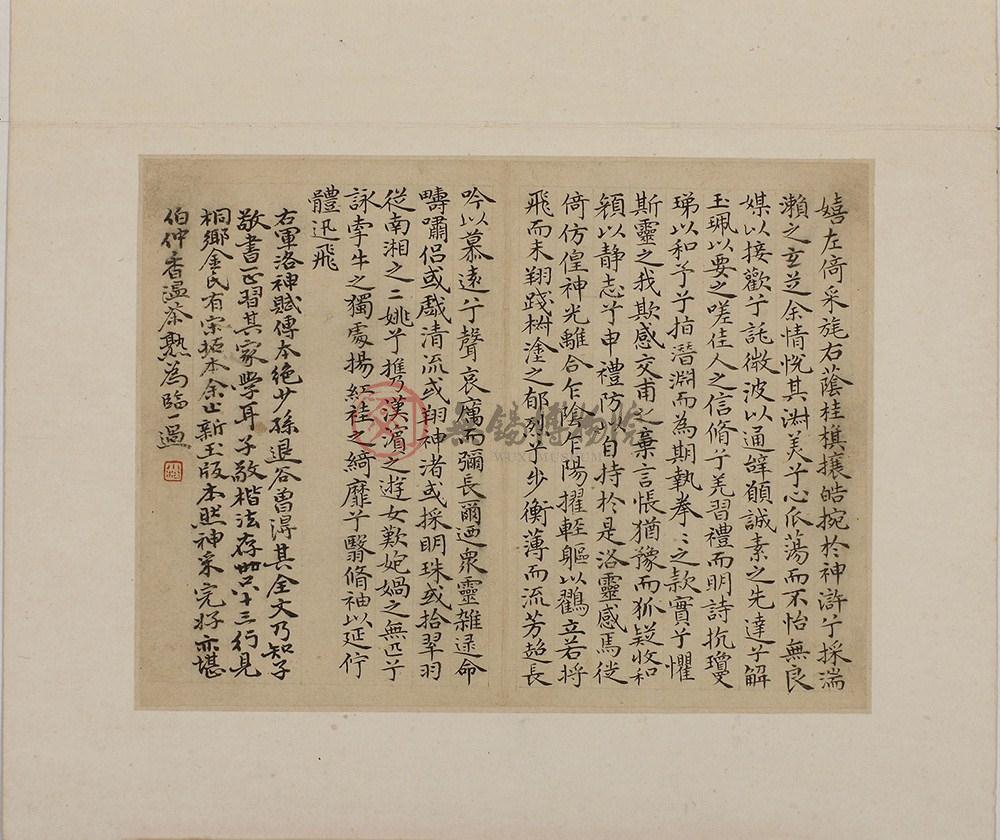 嬉左倚采旄右蔭桂旗攘皓捥於神滸兮採湍
瀨之玄芝余情悅其淑美兮心振蕩而不怡無良
媒以接歡兮託微波以通辭願誠素之先達兮解
玉珮以要之嗟佳人之信脩兮羌習禮而明詩抗瓊
珶以和予兮指潛淵而為期執拳〻之款實兮懼
斯靈之我欺感交甫之棄言悵猶豫而狐疑收和
顏以靜志兮申禮防以自持於是洛靈感焉徙
倚仿偟神光離合乍陰乍陽擢輕軀以鶴立若將
飛而未翔踐椒塗之郁烈兮步衡薄而流芳超長
吟以慕遠兮聲哀厲而彌長爾迺衆靈雜遝命
疇嘯侶或戲清流或翔神渚或採明珠或拾翠羽
從南湘之二姚兮攜漢濱之遊女歎妃媧之無匹兮
詠牽牛之獨處揚紅袿之綺靡兮翳脩袖以延佇
體迅飛
右軍洛神賦傳本絕少孫退谷曾得其全文乃知子
敬書正習其家學耳子敬楷法存世只十三行見
桐鄉金氏有宋拓本余此新玉版本然神采完好亦堪
伯仲香溫茶熟為臨一過
無錫博物院
WUXI MUSEUM